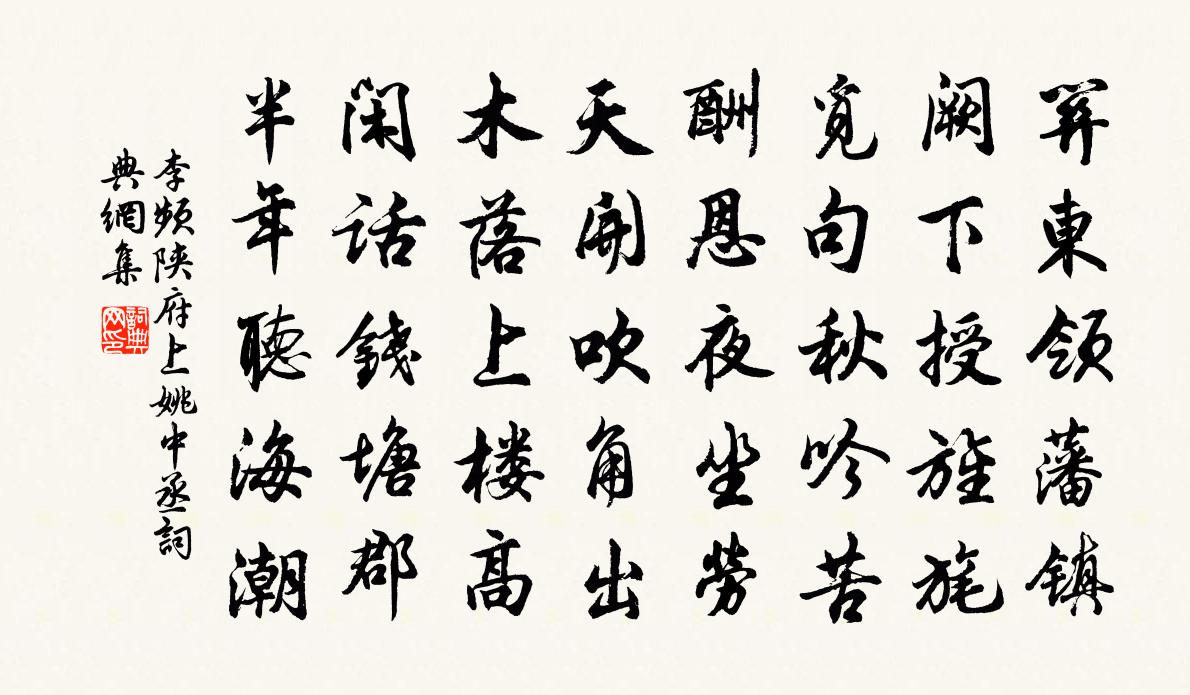 關東領藩鎮
闕下授旌旄
覓句秋吟苦
酬恩夜坐勞
天開吹角出
木落上楼高
閑話錢塘郡
半年聽海潮
李频陝府上姚中丞詞
典網集
詞典
网印